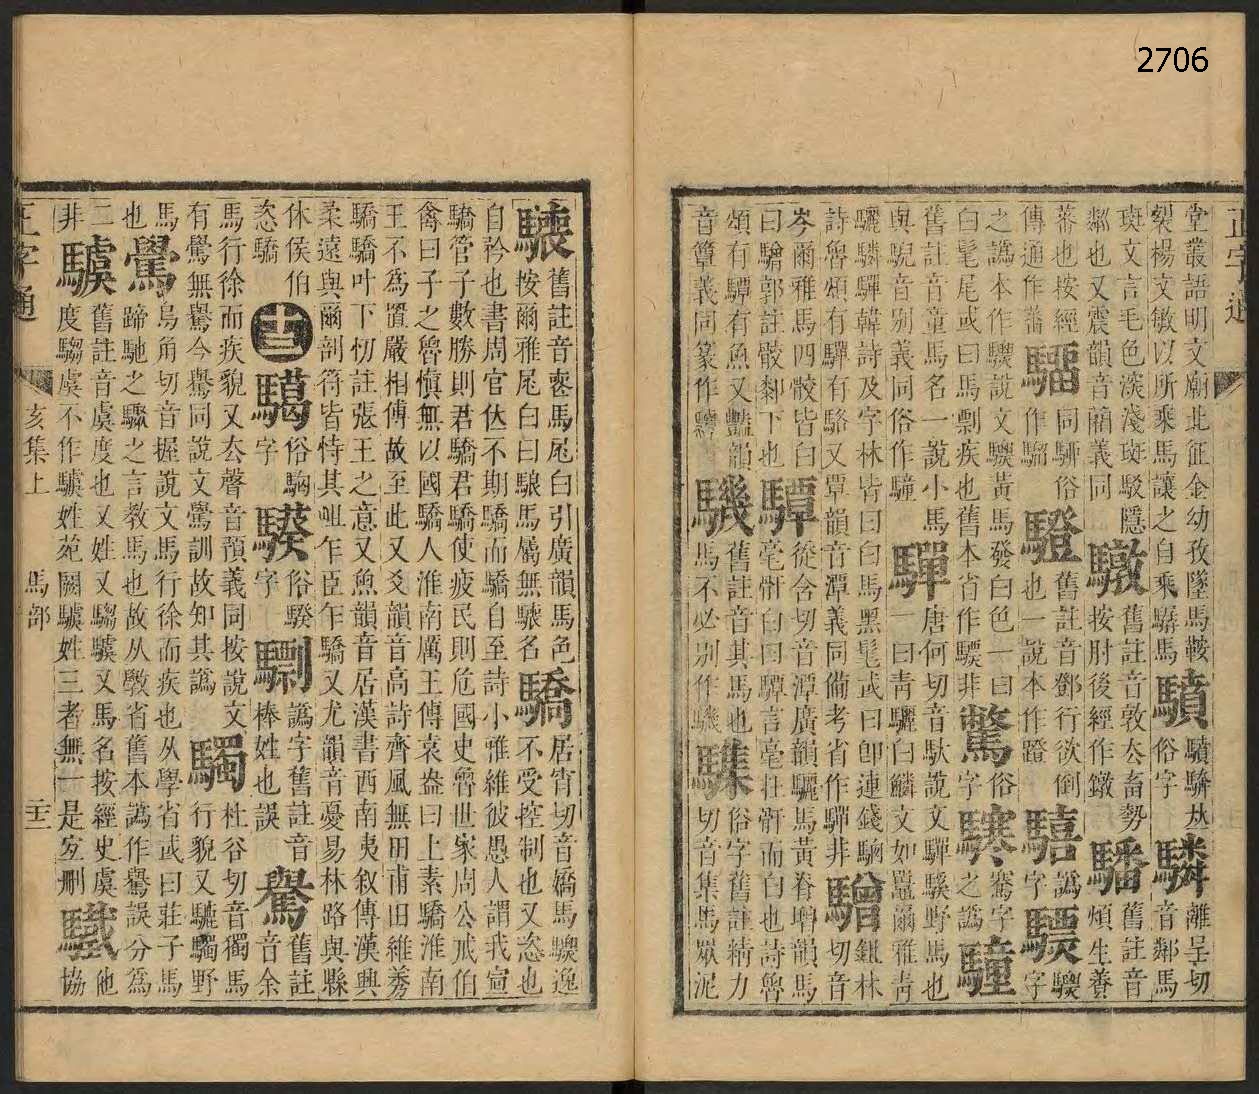 2706
正字通
堂叢語明文廟北征金幼孜墜馬鞍
裂楊文敏以所乘馬讓之自乘驏馬
驞俗字
驞驕
麟離呈切
音鄰馬
斑文言毛色淡淺斑駁隱
粼也又震韻音藺義同
驐舊註音敦去畜勢
按肘後經作鐓
驓舊註音
煩生養
蕃也按經
傳通作蕃
騮同騑俗
作騮
驓舊註音鄧行欲倒
也一說本作蹬
驓譌
字
驃驥
字
之譌本作驃說文驃黃馬發白色一曰
白髦尾或曰馬剽疾也舊本省作驃非
驚俗
字
騫騫字
之譌
驙
舊註音童馬名一說小馬
與駝音別義同俗作驙
驒唐何切音馱說文驒騱野馬也
一曰青驪白鱗文如鼉爾雅青
驪驎驒韓詩及字林皆曰白馬黑髦或曰卽連錢驄
詩魯頌有驒有駱又覃韻音潭義同備考省作驒非
驓鉏林
切音
岑爾雅馬四骹皆白
曰驓郭註骹黎下也
驔從含切音潭廣韻驪馬黃脊增韻馬
毫骭白曰驔言毫在骭而白也詩魯
頌有驔有魚又豔韻
音簟義同篆作驔
驥舊註音其馬也
馬不必別作驥
驟俗字舊註精力
切音集馬眾泥
騴舊註音宴馬尾白引廣韻馬色
按爾雅尾白曰騴馬屬無騴名
驕居宵切音嬌馬驕逸
不受控制也又恣也
自矜也書周官位不期驕而驕自至詩小雅維彼愚人謂我宣
驕管子數勝則君驕君驕使疲民則危國史魯世家周公戒伯
禽曰子之魯愼無以國驕人淮南厲王傳袁盎曰上素驕淮南
王不爲置嚴相傅故至此又爻韻音高詩齊風無田甫田維莠
驕驕叶下忉註張王之意又魚韻音居漢書西南夷敘傳漢興
柔遠與爾剖符皆恃其岨乍臣乍驕又尤韻音憂易林路與縣
休侯伯
恣驕
十二
騔俗騧
字
騤俗騤
字
驃譌字舊註音
棒姓也誤
鷽舊註
音余
馬行徐而疾貌又去聲音預義同按說文
有鷽無鷽今鷽同說文鷽訓故知其譌
驧杜谷切音獨馬
行貌又驉驧野
馬
也
鷽烏角切音握說文馬行徐而疾也从學省或曰莊子馬
蹄馳之驟之言教馬也故从斆省舊本譌作鷽誤分爲
二
非
驉舊註音虞度也又姓又騶驉又馬名按經史虞
度騶虞不作驉姓苑闕驉姓三者無一是宜刪
驖他
協
正字通
亥集上
馬部
二十二